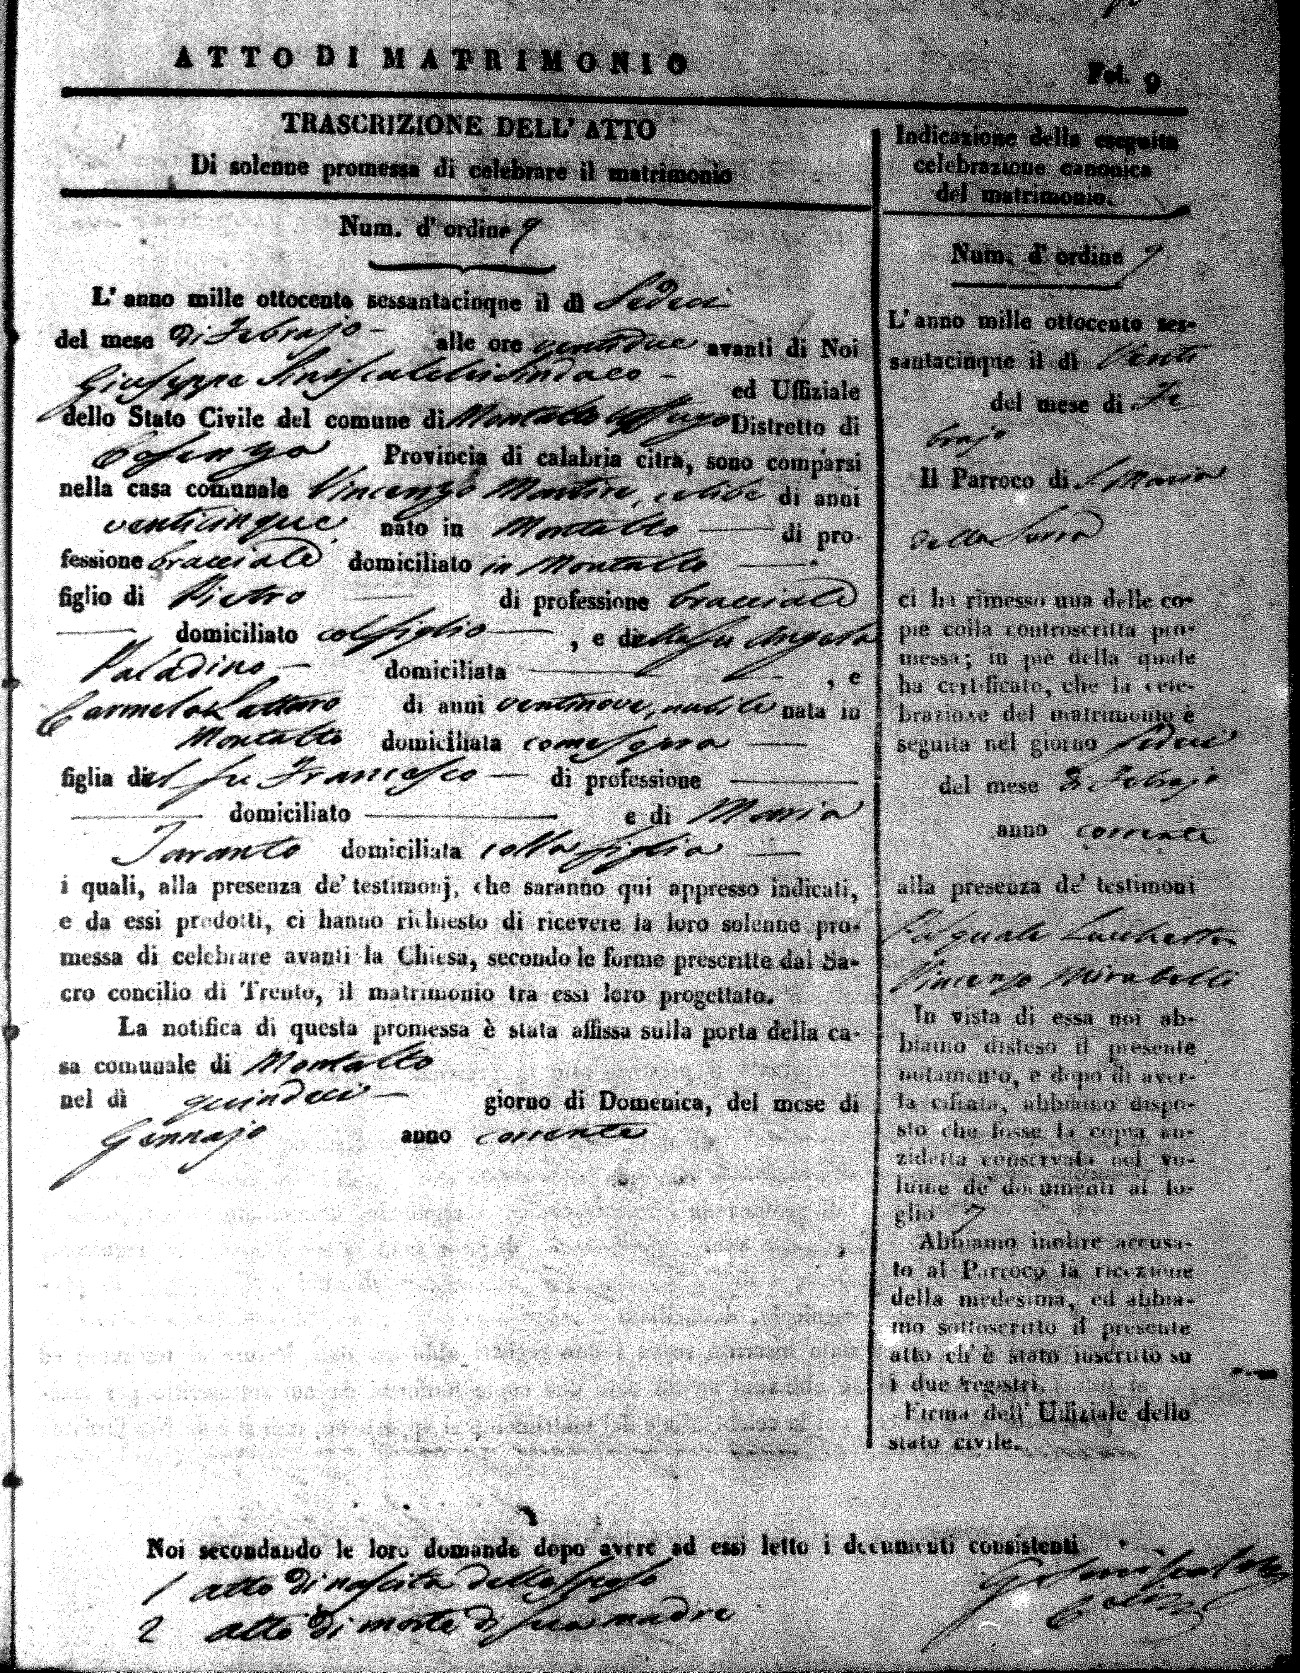 ATTO DI MATRIMONIO
Fol. 9
TRASCRIZIONE DELL' ATTO
Di solenne promessa di celebrare il matrimonio
Num. d' ordine 9
L' anno mille ottocento sessantacinque il dì Sedeci
del mese di Febrajo alle ore ventidue avanti di Noi
Giuseppe Siniscalchi Sindaco ed Uffiziale
dello Stato Civile del comune di Montalto Uffugo Distretto di
Cosenza Provincia di calabria citra, sono comparsi
nella casa comunale Vincenzo Martire, celibe di anni
venticinque, nato in Montalto di pro-
fessione bracciale domiciliato in Montalto
figlio di Pietro di professione bracciale
domiciliato col figlio , e di della fu Angela
Paladino domiciliata , e
Carmela Lattaro di anni ventinove, nubile nata in
Montalto domiciliata come sopra
figlia di del fu Francesco di professione
domiciliato e di Maria
Taranto domiciliata colla figlia
i quali, alla presenza de' testimonj, che saranno qui appresso indicati,
e da essi prodotti, ci hanno richiesto di ricevere la loro solenne pro-
messa di celebrare avanti la Chiesa, secondo le forme prescritte dal Sa-
cro concilio di Trento, il matrimonio tra essi loro progettato.
La notifica di questa promessa è stata affissa sulla porta della ca-
sa comunale di Montalto
nel dì quindeci giorno di Domenica, del mese di
Gennajo anno corrente
Indicazione della eseguita
celebrazione canonica
del matrimonio.
Num. d' ordine 9
L' anno mille ottocento ses-
santacinque il dì Venti
del mese di Fe
brajo
Il Parroco di S. Maria
della Serra
ci ha rimesso una delle co-
pie colla controscritta pro-
messa; in piè della quale
ha certificato, che la cele-
brazione del matrimonio è
seguita nel giorno sedeci
del mese di Febrajo
anno corrente
alla presenza de' testimoni
Pasquale Lucchetta
Vincenzo Mirabelli
In vista di essa noi ab-
biamo disteso il presente
notamento, e dopo di aver-
la cifrata, abbiamo dispo-
sto che fosse la copia an-
zidetta conservata nel vo-
lume de' documenti al fo-
glio
Abbiamo inoltre accusa-
to al Parroco la ricezione
della medesima, ed abbia-
mo sottoscritto il presente
atto ch' è stato inscritto su
i due registri.
Firma dell' Uffiziale dello
stato civile.
Noi secondando le loro domande dopo avere ad essi letto i documenti consistenti
1 atto di nascita dello sposo
2 atto di morte di sua madre